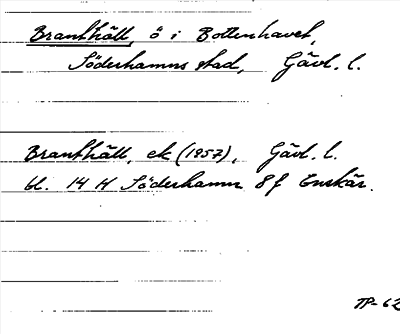 Branthäll, ö i Bottenhavet,
Söderhamns stad, Gävl. l.
Branthäll, ek (1957), Gävl. l.
bl. 14 H Söderhamn 8 f Enskär.
TP-62